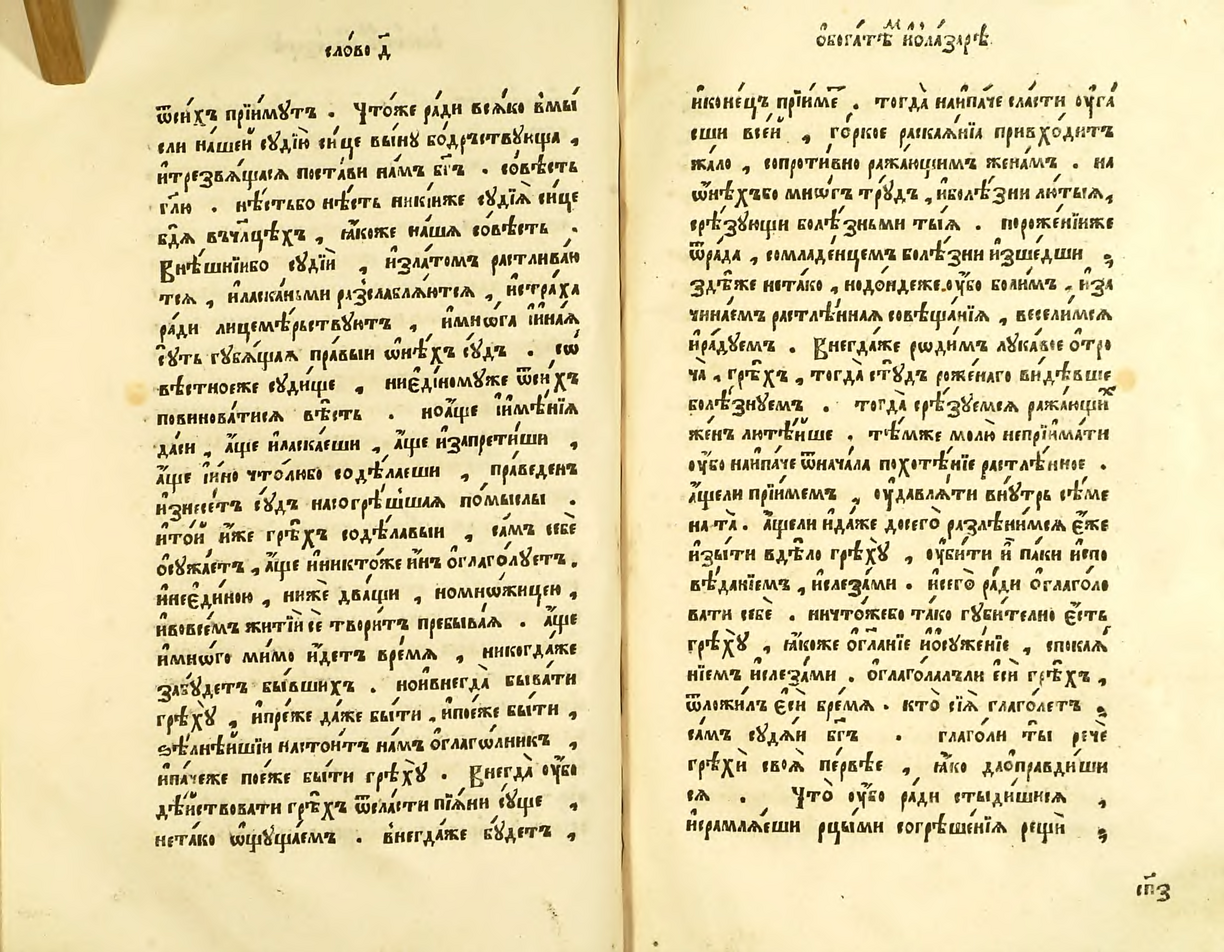 сло́во д҃
ѿси́хъ прїи́мутъ . Что́же ра́ди вся́ко в̾мы́
сли на́шей судїю̀ си́це вы́ну бо́дръствующа ,
и҆трезвя́щася поста́ви на́мъ бг҃ъ . со́вѣсть
гл҃ю . нѣ́стьбо нѣ́сть ники́иже судїя̀ си́це
бдя̀ въчл҃цѣхъ , я҆́коже на́ша со́вѣсть .
Внѣ́шнїибо судїи̑ , и҆зла́томъ растлива́ю
тся , и҆ласка́ньми разслабля́ются , и҆стра́ха
ра́ди лицемѣ́рьствуютъ , и҆мно́га и҆на́я
су́ть губя́щая пра́выи ѡ҆нѣ́хъ су́дъ . сѡ́
вѣстноеже суди́ще , ниеди́номуже ѿси́хъ
повинова́тися вѣ́сть . ноа҆́ще и҆мѣ́нїя
да́си , а҆́ще и҆ласка́еши , а҆́ще и҆запрети́ши ,
а҆́ще и҆́но что́либо содѣ́лаеши , пра́веденъ
и҆знесе́тъ су́дъ насогрѣ́шшая по́мыслы .
и҆то́й и҆́же грѣ́хъ содѣ́лавыи , са́мъ себѐ
ѡ҆сужа́етъ , а҆́ще и҆никто́же и҆́нъ ѡ҆глаго́луетъ .
и҆неє҆ди́ною , ни́же два́щи , номно́жицею ,
и҆вовсе́мъ житїи̑ сѐ твори́тъ пребыва́я . а҆́ще
и҆мно́го ми́мо и҆́детъ вре́мя , никогда́же
забу́детъ бы́вшихъ . нои҆внегда̀ быва́ти
грѣ́ху , и҆пре́же да́же бы́ти , и҆по́сже бы́ти ,
ѕѣлнѣ́йшїи настои́тъ на́мъ ѡ҆глаго́лникъ ,
и҆па́чеже по́сже бы́ти грѣ́ху . Внегда̀ оу҆́бо
дѣ́йствовати грѣ́хъ ѿсла́сти пїя́ни су́ще ,
нета́ко ѡ҆щуща́емъ . внегда́же бу́детъ ,
м҃л ,
ѡ҆бога́тѣ и҆ѡла́зарѣ
и҆коне́цъ прїи́ме́т . тогда̀ наипа́че сла́сти оу҆га́
сши все́й , го́ркое раска́янїя привхо́дитъ
жа́ло , сопроти́вно ража́ющимъ жена́мъ . на
ѡ҆нѣ́хъбо мно́гъ тру́дъ , и҆болѣ́зни лю́тыя ,
срѣ́зующи болѣ́зньми ты́я . порожде́нїиже
ѿра́да , сомладе́нцемъ болѣ́зни и҆зше́дши ;
здѣ́же нета́ко , нодо́ндеже оу҆́бо боли́мъ , и҆за
чина́емъ растлѣ́нная совѣща́нїя , весели́мся
и҆ра́дуемъ . Внегда́же роди́мъ лука́вое о҆тро
ча̀ , грѣ́хъ , тогда̀ сту́дъ роже́наго ви́дѣвше
болѣ́знуемъ . тогда̀ срѣ́зуемся ража́ющих
же́нъ лютѣ́йше . тѣ́мже молю̀ неприима́ти
оу҆́бо наипа́че ѿнача́ла похотѣ́нїе растлѣ́нное .
а҆́щели прїи́мемъ , оу҆давля́ти вну́трь сѣ́ме
на та̀ . а҆́щели и҆да́же досего̀ разлѣни́мся є҆́же
и҆зы́ти вдѣ́ло грѣ́ху , оу҆би́ти и҆̀ па́ки и҆спо
вѣ́данїемъ , и҆слеза́ми . и҆сего̀ ра́ди ѡ҆глаго́ло
вати себѐ . ничто́жебо та́ко губи́телно є҆́сть
грѣ́ху , я҆́коже ѡ҆гла́нїе и҆ѡсуже́нїе , спокая́
нїемъ и҆слеза́ми . ѡ҆глаго́лалъли есѝ грѣ́хъ ,
ѿложи́лъ є҆сѝ бре́мя . кто̀ сїя̀ глаго́летъ ;
са́мъ судя́и бг҃ъ . глаго́ли ты̀ рече̑
грѣ́хи своя̀ пе́рвѣе , я҆́ко даѡправди́ши
ся . Что̀ оу҆́бо ра́ди стыди́шися ,
и҆срамля́еши рцы́ми согрѣше́нїя рещѝ ;
сп҃з